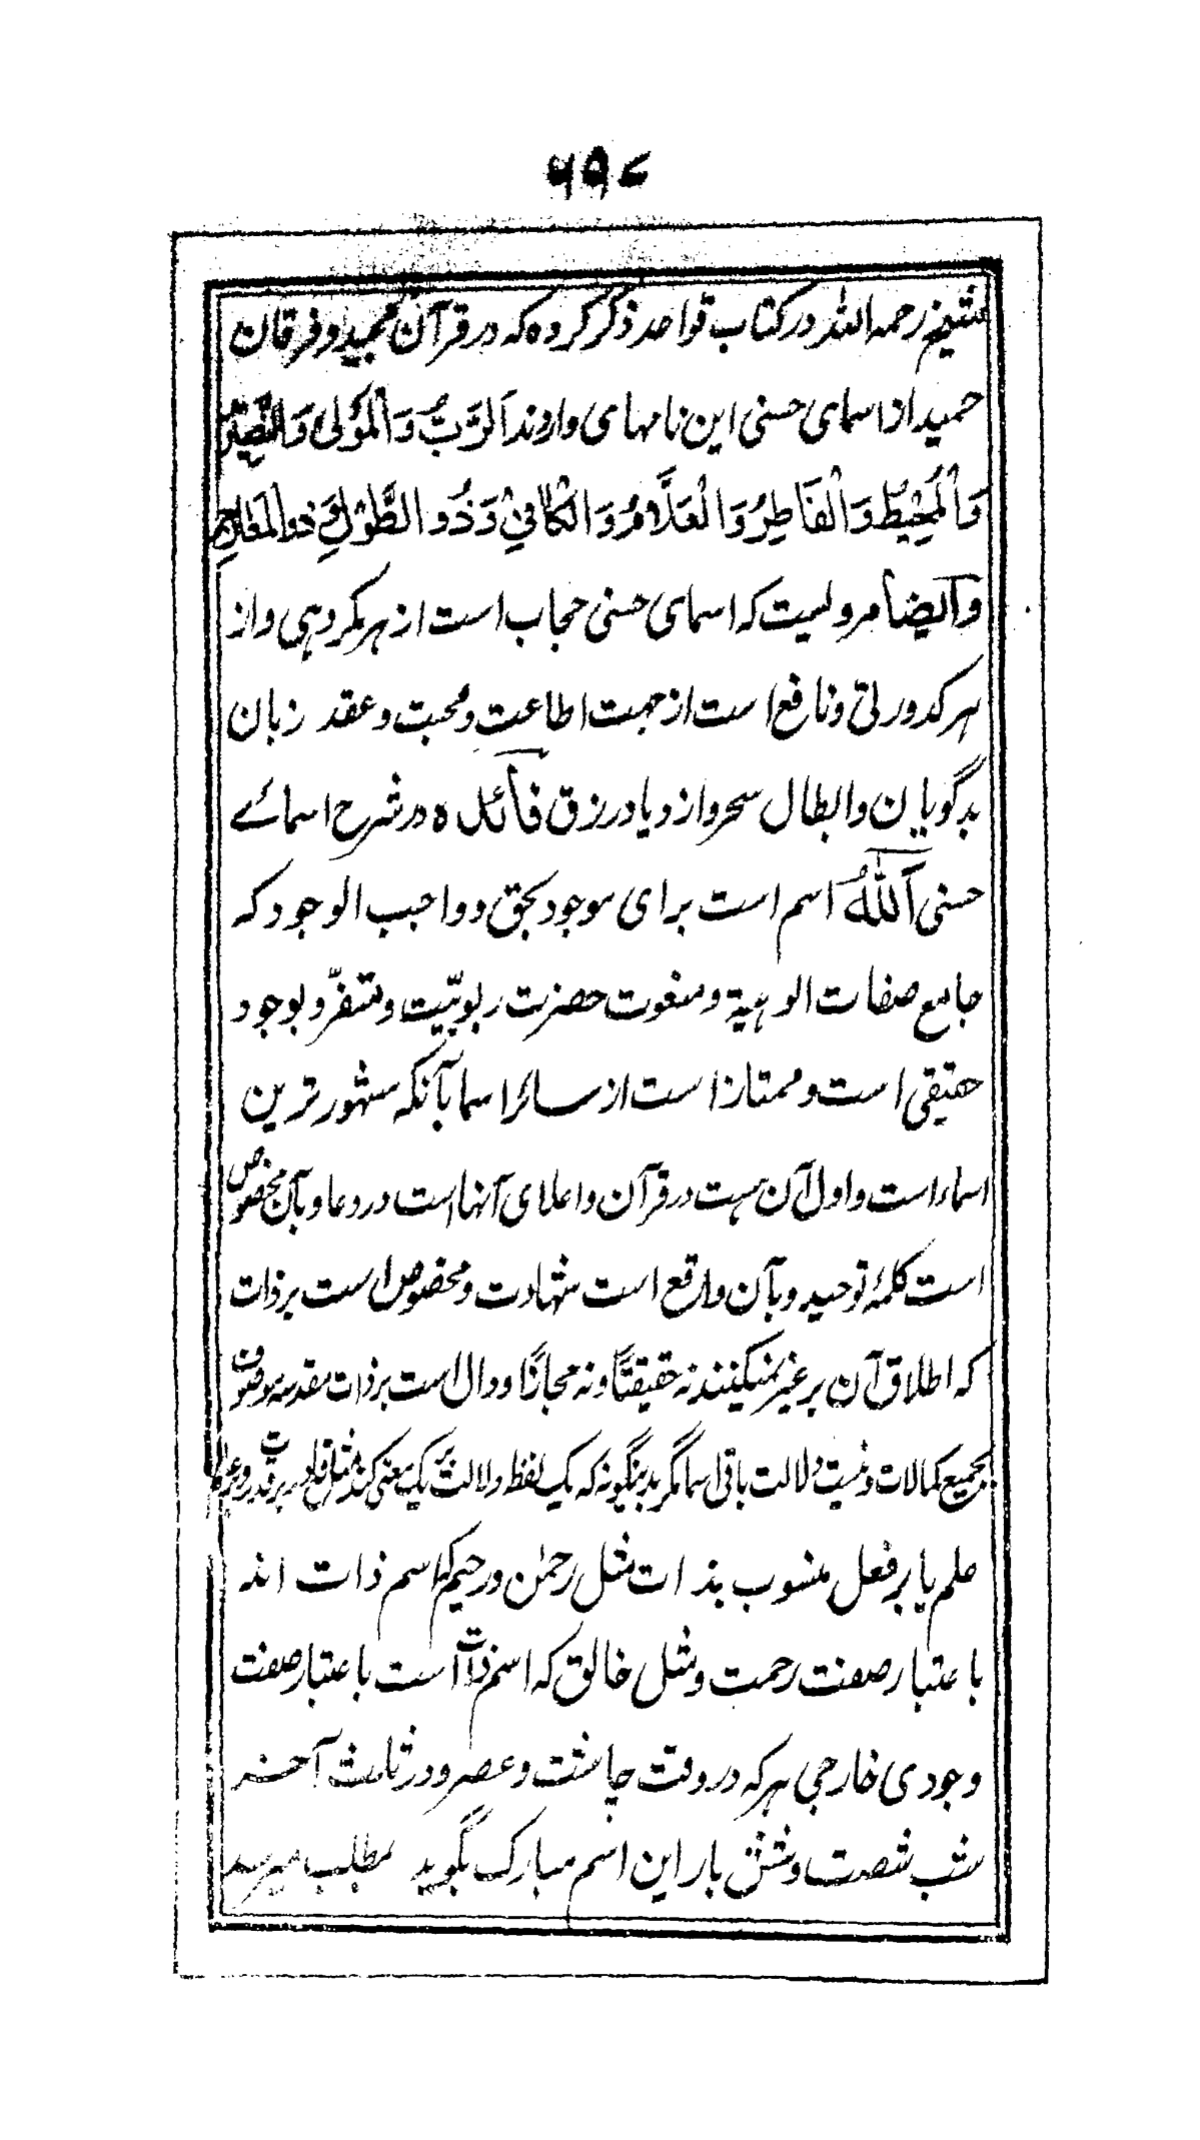 ۶۵۷
شیخ رحمه الله در کتاب قواعد ذکر کرده که در قرآن مجید و فرقان
حمید از اسمای حسنی این نامهای وارد ند اَلرَّبُّ وَالْمَوْلٰی وَالنَّصِیْرُ
وَالْمُحِیْطُ وَالْفَاطِرُ وَالْعَلَّامُ وَالْکَافِیْ وَذُو الطَّوْلِ وَ ذو المَعَارِجِ
وَاَیضاً مرویست که اسمای حسنی حجاب است از هر مکروهی و از
هر کدورتی و نافع است از جهت اطاعت و محبت و عقد زبان
بدگویان و ابطال سحر و ازدیاد رزق فائده در شرح اسمائے
حسنی اَللّٰهُ اسم است برای موجود بحق و واجب الوجود که
جامع صفات الوهیة و منعوت حضرت ربوبیّت و متفرّد بوجود
حقیقی است و ممتاز است از سائر اسما بآنکه مشهور ترین
اسماء است و اول آن هست در قرآن و اعلای آنها است در دعا و بآن مخصوص
است کلمۂ توحید و بآن واقع است شهادت و مخصوص است بر ذات
که اطلاق آن بر غیر نمیکنند نه حقیقتًا و نه مجازًا و دال است بر ذات مقدسه موصوف
بجمیع کمالات و نیست دلالت باقی اسما مگر بدینگونه که یک لفظ دلالت بر یک معنی کند مثل قادر بر قدرت و عالم بر
علم یا بر فعل منسوب بذات مثل رحمٰن و رحیم که اسم ذات اند
باعتبار صفت رحمت و مثل خالق که اسم ذات است باعتبار صفت
وجودی خارجی هر که در وقت چاشت و عصر و در ثلث آخر
شب شصت و شش بار این اسم مبارک بگوید بمطلب میرسد